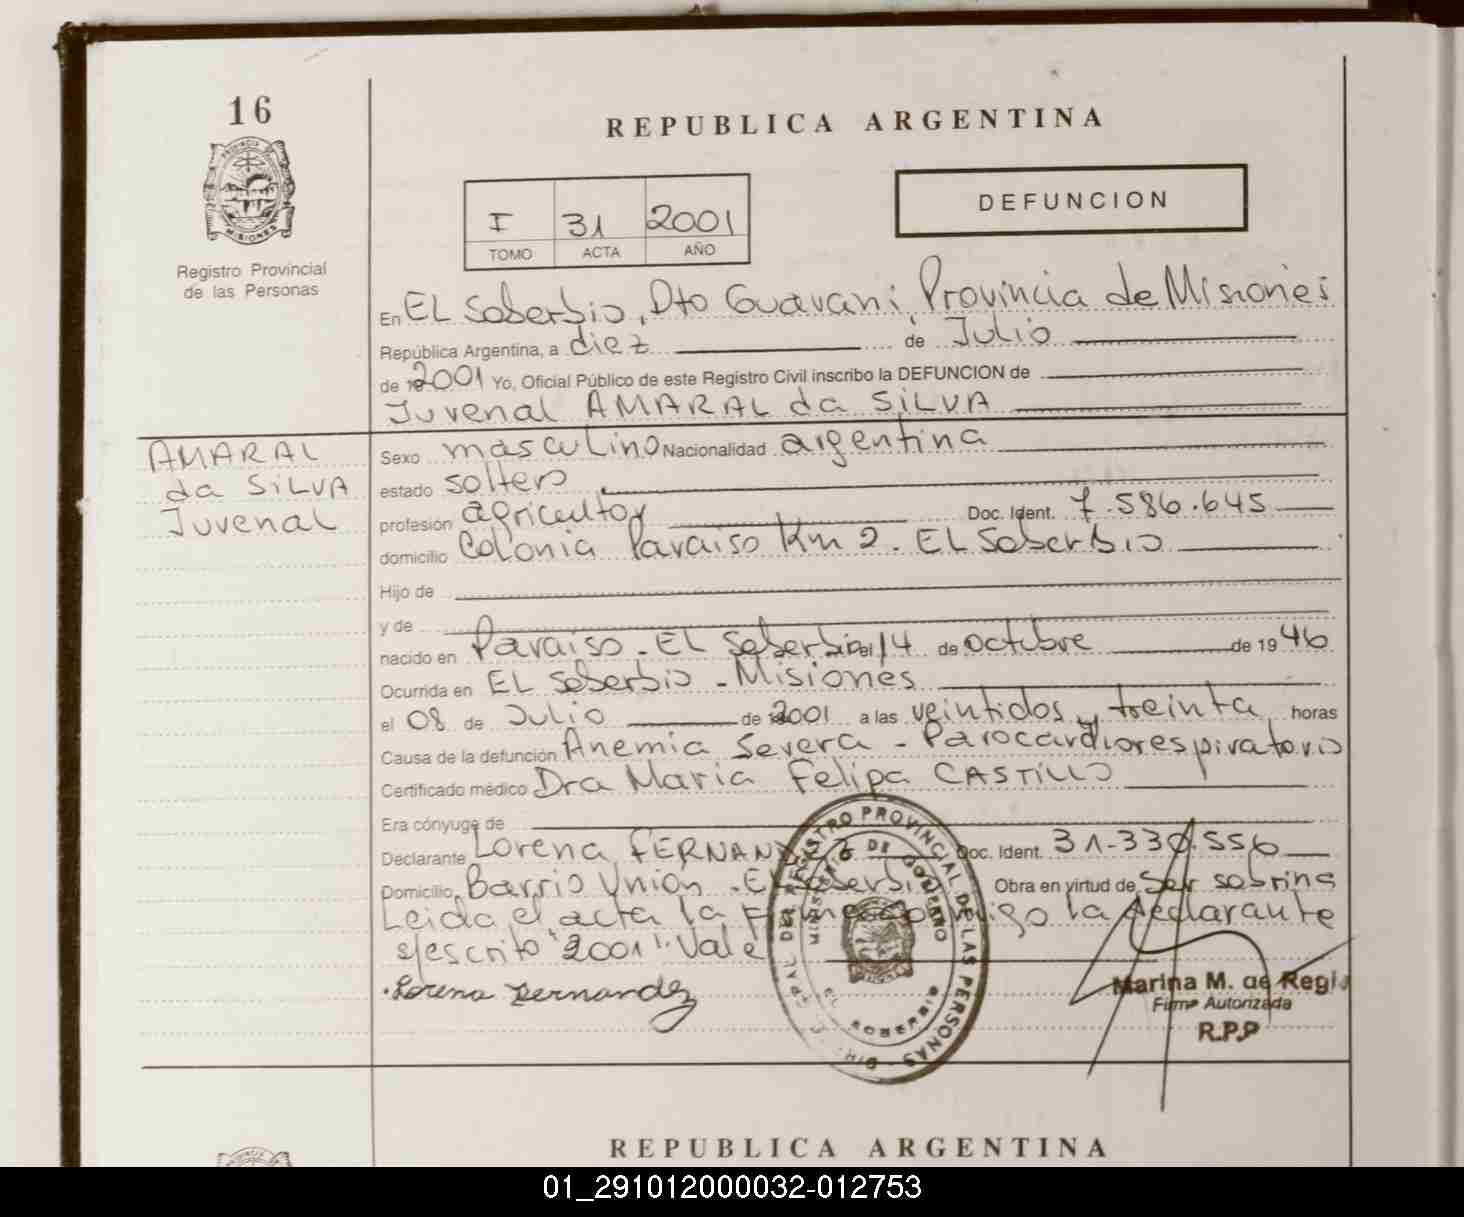 16
REPUBLICA ARGENTINA
DEFUNCION
I 31 2001
TOMO ACTA AÑO
PROVINCIA
MISIONES
Registro Provincial
de las Personas
En EL Soberbio, Dto Guarani, Provincia de Misiones
República Argentina, a diez de Julio
de 2001 Yo, Oficial Público de este Registro Civil inscribo la DEFUNCION de
Juvenal AMARAL da SILVA
AMARAL
da SILVA
Juvenal
Sexo masculino Nacionalidad argentina
estado soltero
profesión agricultor Doc. Ident. 7.586.645
domicilio Colonia Paraiso Km 2. EL Soberbio
Hijo de
y de
nacido en Paraiso - EL Soberbio el 14 de octubre de 1946
Ocurrida en EL Soberbio - Misiones
el 08 de Julio de 2001 a las veintidos y treinta horas
Causa de la defunción Anemia Severa - Parocardiorespiratorio
Certificado médico Dra Maria Felipa CASTILLO
Era cónyuge de
Declarante Lorena FERNANDEZ Doc. Ident. 31.330.556
Domicilio Barrio Union - EL Soberbio Obra en virtud de Ser sobrina
Leida el acta la firma conmigo la declarante
s/escrito "2001". Vale
Lorena Fernandez
REGISTRO PROVINCIAL DE LAS PERSONAS
MINISTERIO DE GOBIERNO
EL SOBERBIO
Marina M. de Regis
Firma Autorizada
R.P.P
REPUBLICA ARGENTINA
01_291012000032-012753